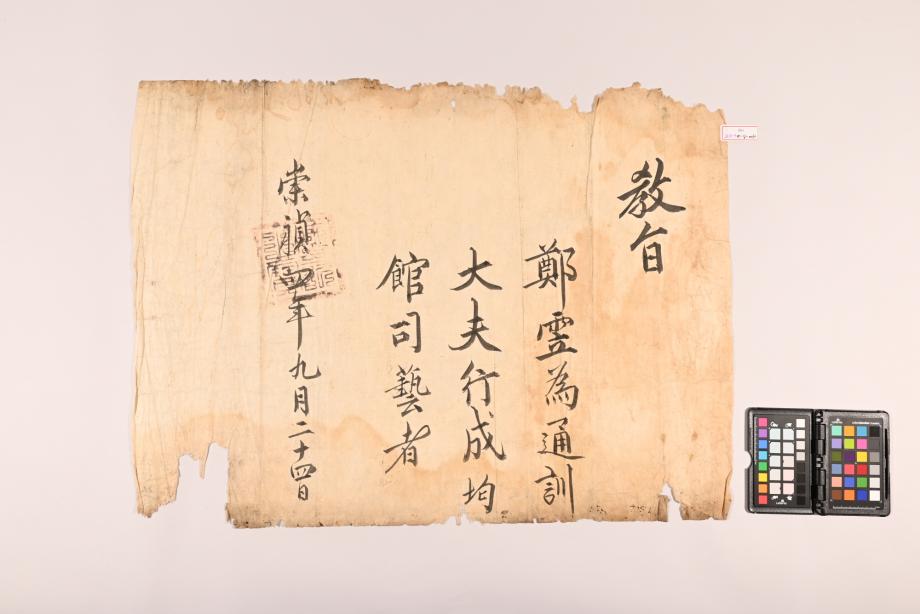 教旨
鄭雴為通訓
大夫行成均
館司藝者
崇禎四年九月二十四日